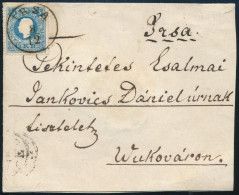 IRSA
Irsa.
Tekintetes Esalmai
Jankovics Dániel úrnak
tisztelet
Wukováron.